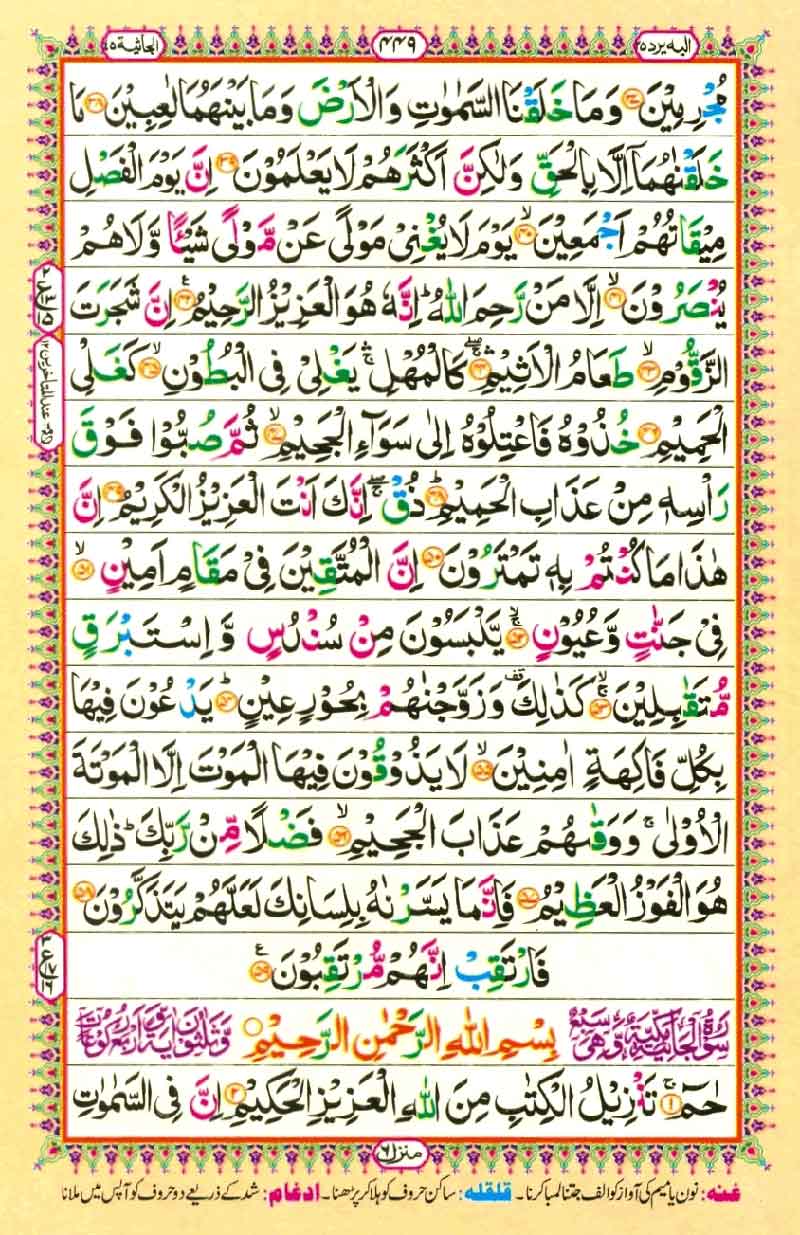 الیه یرد ۲۵
۴۴۹
الجاثیة ۴۵
مُجْرِمِيْنَ ﴿۳۷﴾ وَمَا خَلَقْنَا السَّمٰوٰتِ وَالْاَرْضَ وَمَا بَيْنَهُمَا لٰعِبِيْنَ ﴿۳۸﴾ مَا
خَلَقْنٰهُمَاۤ اِلَّا بِالْحَقِّ وَلٰكِنَّ اَكْثَرَهُمْ لَا يَعْلَمُوْنَ ﴿۳۹﴾ اِنَّ يَوْمَ الْفَصْلِ
مِيْقَاتُهُمْ اَجْمَعِيْنَ ﴿۴۰﴾ۙ يَوْمَ لَا يُغْنِىْ مَوْلًى عَنْ مَّوْلًى شَيْـًٔا وَّلَا هُمْ
يُنْصَرُوْنَ ﴿۴۱﴾ۙ اِلَّا مَنْ رَّحِمَ اللّٰهُ ؕ اِنَّهٗ هُوَ الْعَزِيْزُ الرَّحِيْمُ ﴿۴۲﴾ع اِنَّ شَجَرَتَ
الزَّقُّوْمِ ﴿۴۳﴾ۙ طَعَامُ الْاَثِيْمِ ﴿۴۴﴾ كَالْمُهْلِ ۛۚ يَغْلِىْ فِى الْبُطُوْنِ ﴿۴۵﴾ۙ كَغَلْىِ
الْحَمِيْمِ ﴿۴۶﴾ خُذُوْهُ فَاعْتِلُوْهُ اِلٰى سَوَآءِ الْجَحِيْمِ ﴿۴۷﴾ۙ ثُمَّ صُبُّوْا فَوْقَ
رَاْسِهٖ مِنْ عَذَابِ الْحَمِيْمِ ﴿۴۸﴾ؕ ذُقْ ۚۙ اِنَّكَ اَنْتَ الْعَزِيْزُ الْكَرِيْمُ ﴿۴۹﴾ اِنَّ
هٰذَا مَا كُنْتُمْ بِهٖ تَمْتَرُوْنَ ﴿۵۰﴾ اِنَّ الْمُتَّقِيْنَ فِىْ مَقَامٍ اَمِيْنٍ ﴿۵۱﴾ۙ
فِىْ جَنّٰتٍ وَّعُيُوْنٍ ﴿۵۲﴾ۚۙ يَّلْبَسُوْنَ مِنْ سُنْدُسٍ وَّاِسْتَبْرَقٍ
مُّتَقٰبِلِيْنَ ﴿۵۳﴾ۚۙ كَذٰلِكَ قف وَزَوَّجْنٰهُمْ بِحُوْرٍ عِيْنٍ ﴿۵۴﴾ؕ يَدْعُوْنَ فِيْهَا
بِكُلِّ فَاكِهَةٍ اٰمِنِيْنَ ﴿۵۵﴾ۙ لَا يَذُوْقُوْنَ فِيْهَا الْمَوْتَ اِلَّا الْمَوْتَةَ
الْاُوْلٰى ۚ وَوَقٰىهُمْ عَذَابَ الْجَحِيْمِ ﴿۵۶﴾ۙ فَضْلًا مِّنْ رَّبِّكَ ؕ ذٰلِكَ
هُوَ الْفَوْزُ الْعَظِيْمُ ﴿۵۷﴾ فَاِنَّمَا يَسَّرْنٰهُ بِلِسَانِكَ لَعَلَّهُمْ يَتَذَكَّرُوْنَ ﴿۵۸﴾
فَارْتَقِبْ اِنَّهُمْ مُّرْتَقِبُوْنَ ﴿۵۹﴾ع
سُوْرَةُ الْجَاثِيَةِ مَكِّيَّةٌ وَّهِىَ سَبْعٌ بِسْمِ اللّٰهِ الرَّحْمٰنِ الرَّحِيْمِ وَّثَلٰثُوْنَ اٰيَةً وَّاَرْبَعُ رُكُوْعَاتٍ
حٰمٓ ﴿۱﴾ۚ تَنْزِيْلُ الْكِتٰبِ مِنَ اللّٰهِ الْعَزِيْزِ الْحَكِيْمِ ﴿۲﴾ اِنَّ فِى السَّمٰوٰتِ
منزل ۶
غنه: نون یا میم کی آواز کو الف جتنا لمبا کرنا۔ قلقله: ساکن حروف کو ہلا کر پڑھنا۔ ادغام: شد کے ذریعے دو حروف کو آپس میں ملانا